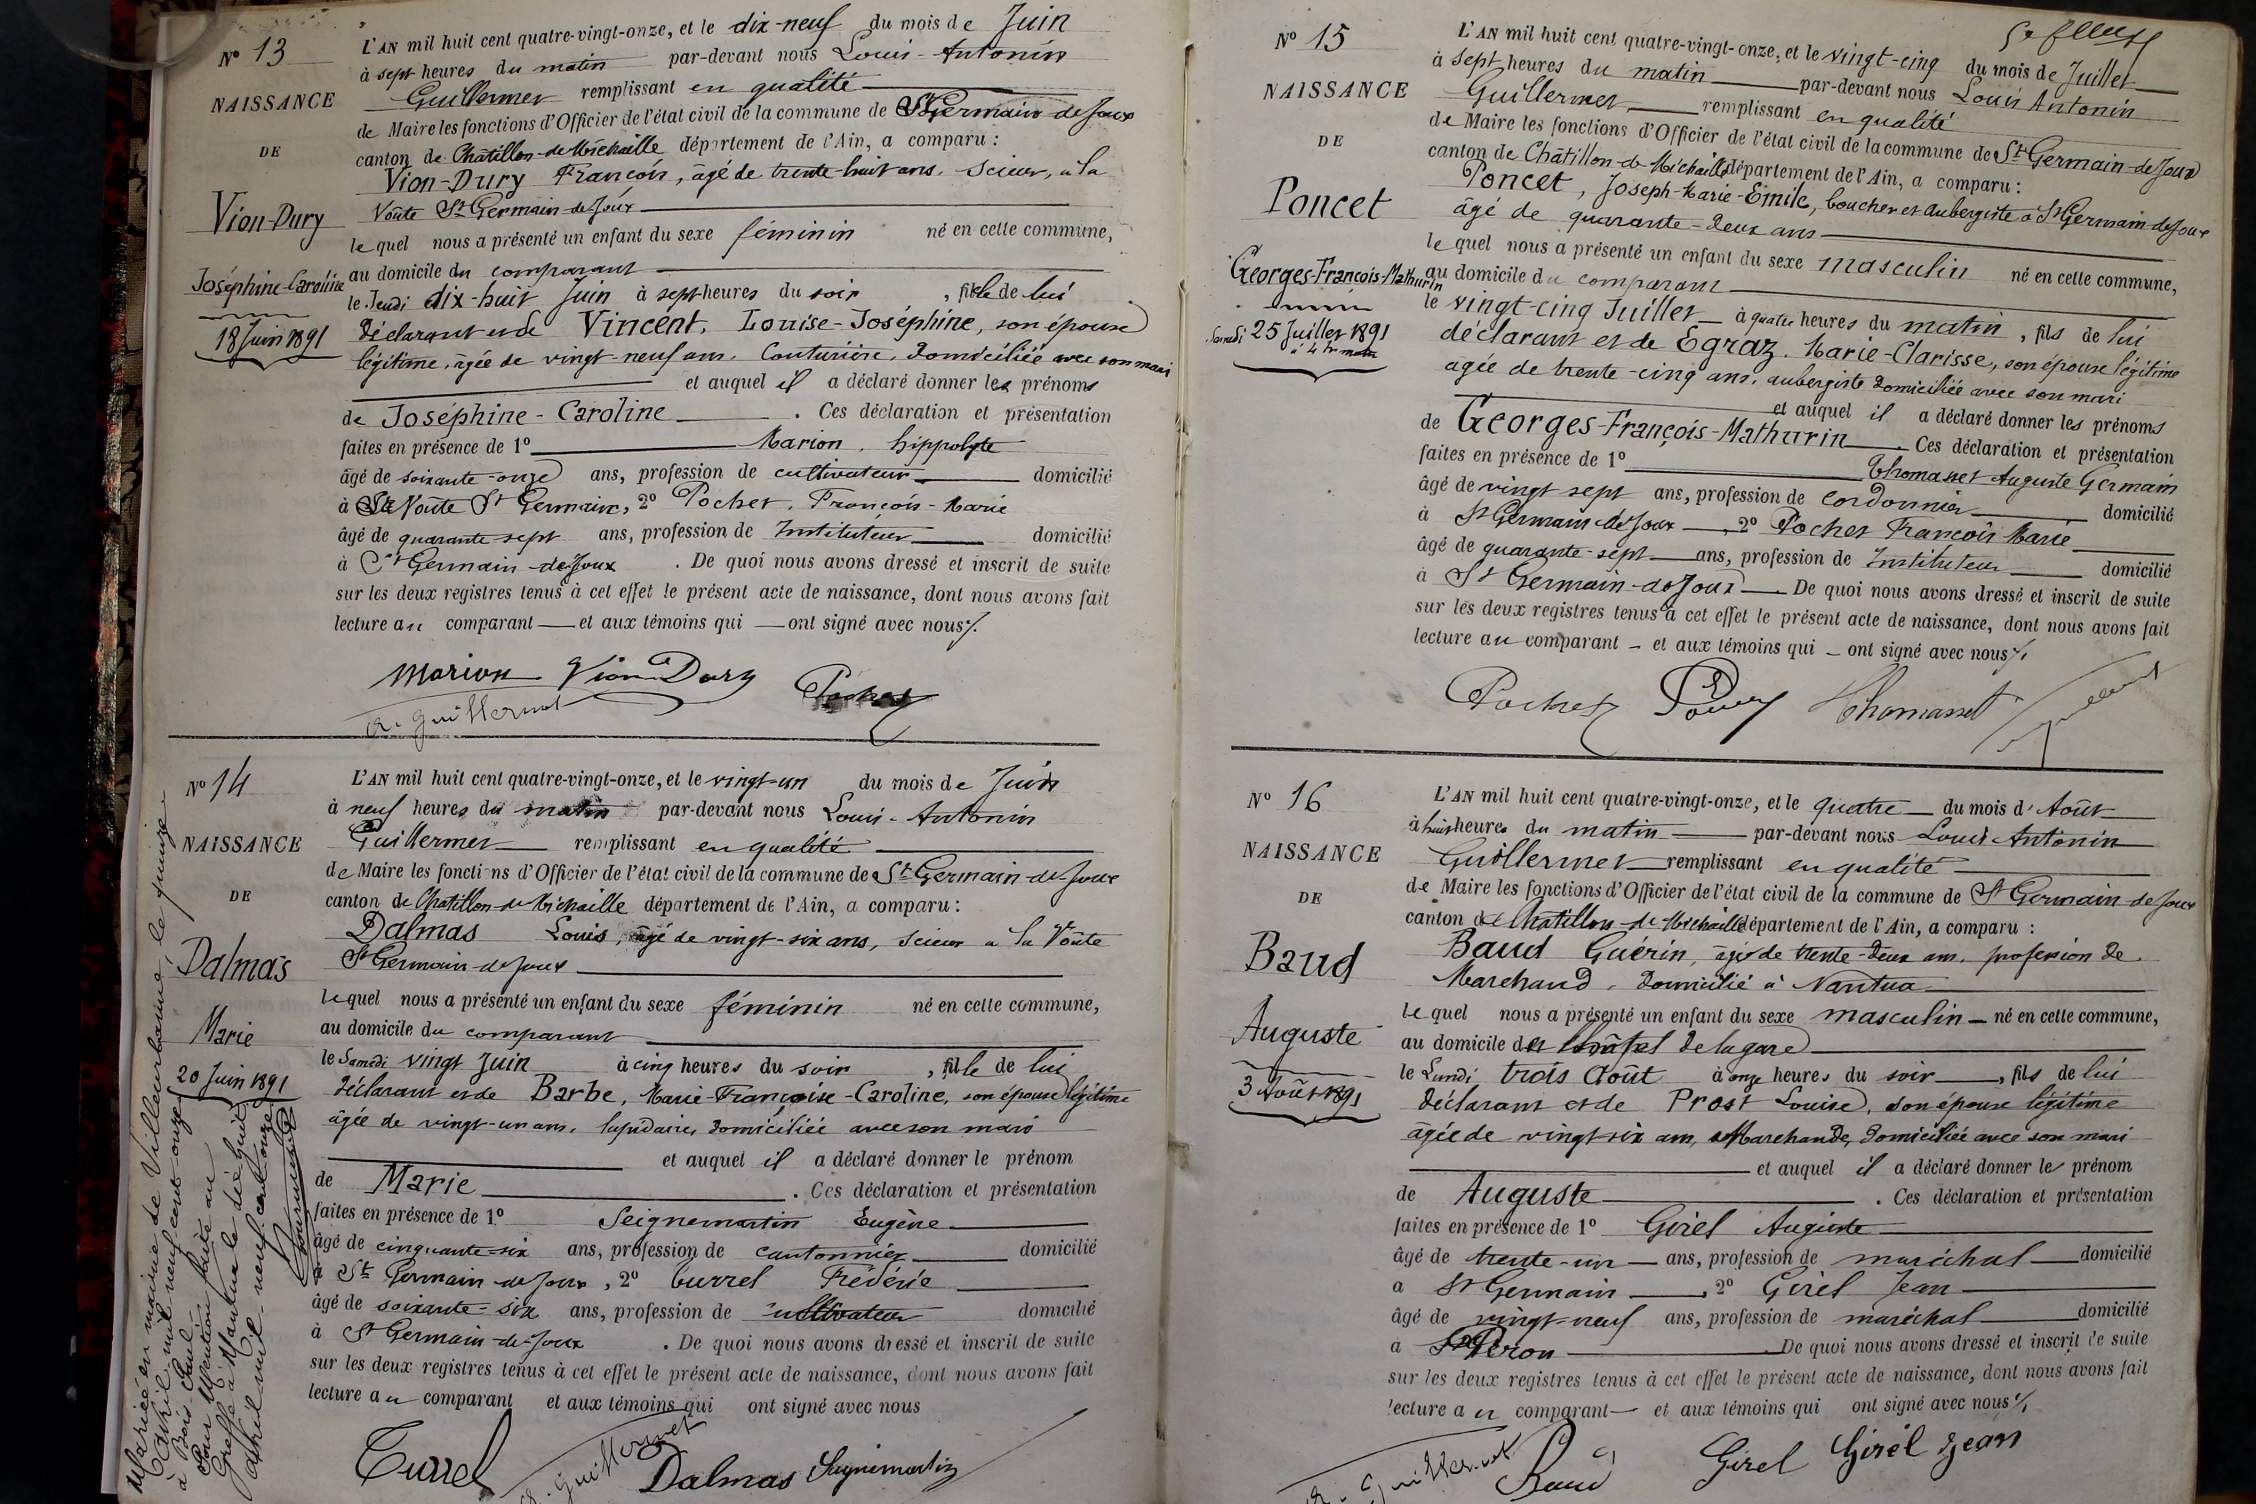 Nº 13
NAISSANCE
DE
Vion-Dury
Joséphine-Caroline
18 Juin 1891
L'AN mil huit cent quatre-vingt-onze, et le dix-neuf du mois de Juin
à sept heures du matin par-devant nous Louis-Antonin
Guillermet remplissant en qualité
de Maire les fonctions d'Officier de l'état civil de la commune de St Germain-de-Joux
canton de Châtillon-de-Michaille département de l'Ain, a comparu :
Vion-Dury François, âgé de trente-huit ans, Scieur, à la
Voûte St Germain-de-Joux
lequel nous a présenté un enfant du sexe féminin né en cette commune,
au domicile du comparant
le Jeudi dix-huit Juin à sept heures du soir, fille de lui
déclarant et de Vincent, Louise-Joséphine, son épouse
légitime, âgée de vingt-neuf ans, Couturière, domiciliée avec son mari
et auquel il a déclaré donner les prénoms
de Joséphine-Caroline. Ces déclaration et présentation
faites en présence de 1º Marion, hippolyte
âgé de soixante-onze ans, profession de cultivateur domicilié
à La Voûte St Germain, 2º Pochet, François-Marie
âgé de quarante-sept ans, profession de Instituteur domicilié
à St Germain-de-Joux. De quoi nous avons dressé et inscrit de suite
sur les deux registres tenus à cet effet le présent acte de naissance, dont nous avons fait
lecture au comparant et aux témoins qui ont signé avec nous./.
Marion Vion-Dury Pochet
A. Guillermet
Nº 14
NAISSANCE
DE
Dalmas
Marie
20 Juin 1891
L'AN mil huit cent quatre-vingt-onze, et le vingt-un du mois de Juin
à neuf heures du matin par-devant nous Louis-Antonin
Guillermet remplissant en qualité
de Maire les fonctions d'Officier de l'état civil de la commune de St Germain-de-Joux
canton de Châtillon-de-Michaille département de l'Ain, a comparu :
Dalmas Louis, âgé de vingt-six ans, Scieur à la Voûte
St Germain-de-Joux
lequel nous a présenté un enfant du sexe féminin né en cette commune,
au domicile du comparant
le Samedi vingt Juin à cinq heures du soir, fille de lui
déclarant et de Barbe, Marie-Françoise-Caroline, son épouse légitime
âgée de vingt-un ans, lapidaire, domiciliée avec son mari
et auquel il a déclaré donner le prénom
de Marie. Ces déclaration et présentation
faites en présence de 1º Seignemartin Eugène
âgé de cinquante-six ans, profession de cantonnier domicilié
à St Germain-de-Joux, 2º Turrel Frédéric
âgé de soixante-six ans, profession de cultivateur domicilié
à St Germain-de-Joux. De quoi nous avons dressé et inscrit de suite
sur les deux registres tenus à cet effet le présent acte de naissance, dont nous avons fait
lecture au comparant et aux témoins qui ont signé avec nous
Turrel A. Guillermet Dalmas Seignemartin
Mariée en mairie de Villeurbanne, le quinze
avril mil neuf cent onze
à Bois Paul
Pour Mention faite au
Greffe à Nantua le dix huit
avril mil-neuf cent onze
Nº 15
NAISSANCE
DE
Poncet
Georges-François-Mathurin
Samedi 25 Juillet 1891
à 4 h matin
L'AN mil huit cent quatre-vingt-onze, et le vingt-cinq du mois de Juillet
à sept heures du matin par-devant nous Louis Antonin
Guillermet remplissant en qualité
de Maire les fonctions d'Officier de l'état civil de la commune de St Germain-de-Joux
canton de Châtillon-de-Michaille département de l'Ain, a comparu :
Poncet, Joseph-Marie-Emile, boucher et aubergiste à St Germain-de-Joux
âgé de quarante-deux ans
lequel nous a présenté un enfant du sexe masculin né en cette commune,
au domicile du comparant
le vingt-cinq Juillet à quatre heures du matin, fils de lui
déclarant et de Egraz, Marie-Clarisse, son épouse légitime
âgée de trente-cinq ans, aubergiste domiciliée avec son mari
et auquel il a déclaré donner les prénoms
de Georges-François-Mathurin. Ces déclaration et présentation
faites en présence de 1º Thomasset Auguste Germain
âgé de vingt sept ans, profession de cordonnier domicilié
à St Germain-de-Joux, 2º Pochet François Marie
âgé de quarante-sept ans, profession de Instituteur domicilié
à St Germain-de-Joux. De quoi nous avons dressé et inscrit de suite
sur les deux registres tenus à cet effet le présent acte de naissance, dont nous avons fait
lecture au comparant et aux témoins qui ont signé avec nous./.
Pochet Thomasset
Nº 16
NAISSANCE
DE
Baud
Auguste
3 Août 1891
L'AN mil huit cent quatre-vingt-onze, et le quatre du mois d'Août
à huit heures du matin par-devant nous Louis Antonin
Guillermet remplissant en qualité
de Maire les fonctions d'Officier de l'état civil de la commune de St Germain-de-Joux
canton de Châtillon-de-Michaille département de l'Ain, a comparu :
Baud Guérin, âgé de trente-deux ans, profession de
Marchand, domicilié à Nantua
lequel nous a présenté un enfant du sexe masculin né en cette commune,
au domicile de l'hôtel de la gare
le Lundi trois Août à onze heures du soir, fils de lui
déclarant et de Prost Louise, son épouse légitime
âgée de vingt-six ans, Marchande, domiciliée avec son mari
et auquel il a déclaré donner le prénom
de Auguste. Ces déclaration et présentation
faites en présence de 1º Girel Auguste
âgé de trente-un ans, profession de maréchal domicilié
à St Germain, 2º Girel Jean
âgé de vingt-neuf ans, profession de maréchal domicilié
à Péron. De quoi nous avons dressé et inscrit de suite
sur les deux registres tenus à cet effet le présent acte de naissance, dont nous avons fait
lecture au comparant et aux témoins qui ont signé avec nous./.
A. Guillermet Baud Girel Girel Jean